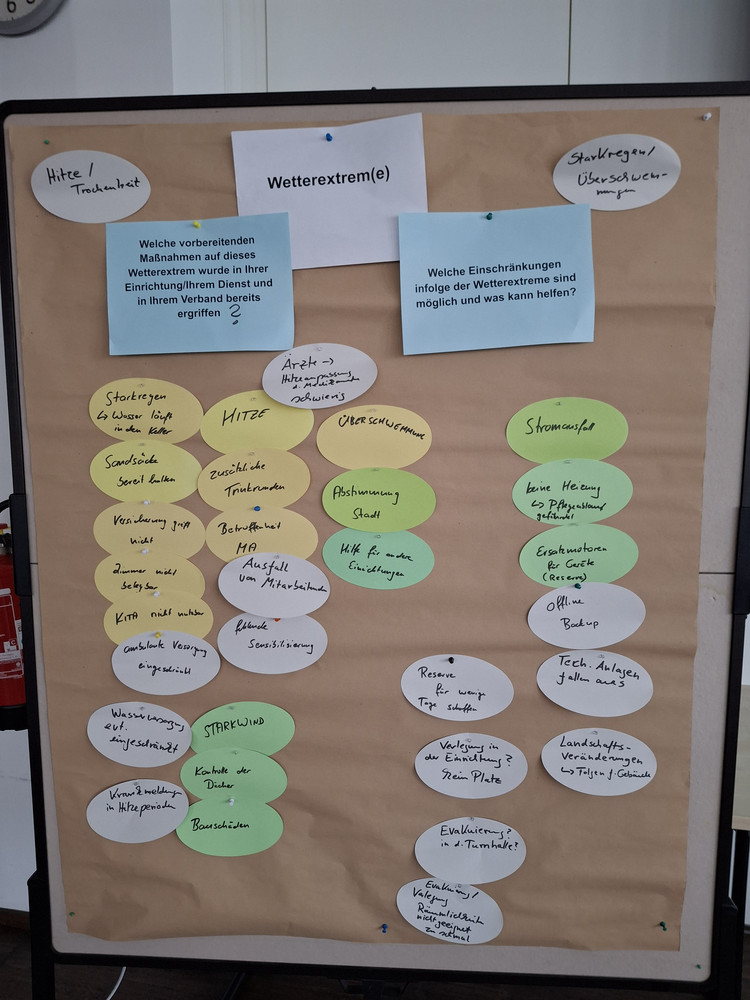 6
Wetterextrem(e)
Hitze /
Trockenheit
Starkregen/
Überschwem-
mungen
Welche vorbereitenden
Maßnahmen auf dieses
Wetterextrem wurde in Ihrer
Einrichtung/Ihrem Dienst und
in Ihrem Verband bereits
ergriffen ?
Welche Einschränkungen
infolge der Wetterextreme sind
möglich und was kann helfen?
Ärzte →
Hitzeanpassung
d. Medikamente
schwierig
Starkregen
↳ Wasser läuft
in den Keller
Sandsäcke
bereit halten
Versicherung greift
nicht
Zimmer nicht
belegbar
KITA nicht nutzbar
ambulante Versorgung
eingeschränkt
HITZE
zusätzliche
Trinkrunden
Betroffenheit
MA
Ausfall
von Mitarbeitenden
fehlende
Sensibilisierung
ÜBERSCHWEMMUNG
Abstimmung
Stadt
Hilfe für andere
Einrichtungen
Wasserversorgung
evt.
eingeschränkt
Krankmeldung
in Hitzeperioden
STARKWIND
Kontrolle der
Dächer
Bauschäden
Stromausfall
keine Heizung
↳ Pflegeablauf
gefährdet
Ersatzmotoren
für Geräte
(Reserve)
Offline
Backup
Tech. Anlagen
fallen aus
Landschafts-
veränderungen
↳ Folgen f. Gebäude
Reserve
für wenige
Tage schaffen
Verlegung in
der Einrichtung?
Kein Platz
Evakuierung?
in d. Turnhalle?
Evakuierung/
Verlegung
Räumlichkeiten
nicht geeignet
zu schmal